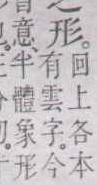 之形。回上各本
有雲字。今
意、半體象形